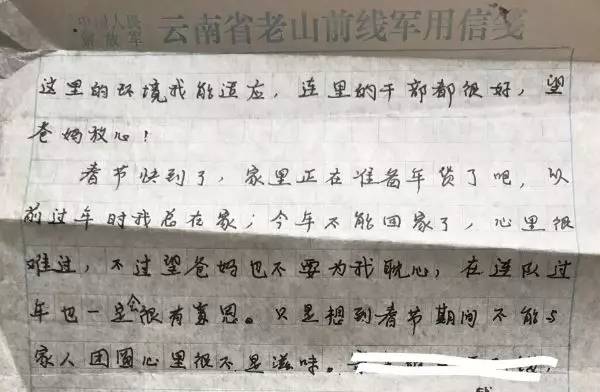 中国人民
解放军 云南省老山前线军用信笺
这里的环境我能适应，连里的干部都很好，望
爸妈放心！
春节快到了，家里正在准备年货了吧，以
前过年时我总在家；今年不能回家了，心里很
难过，不过望爸妈也不要为我耽心，在连队过
年也一定会很有意思。只是想到春节期间不能与
家人团圆心里很不是滋味。